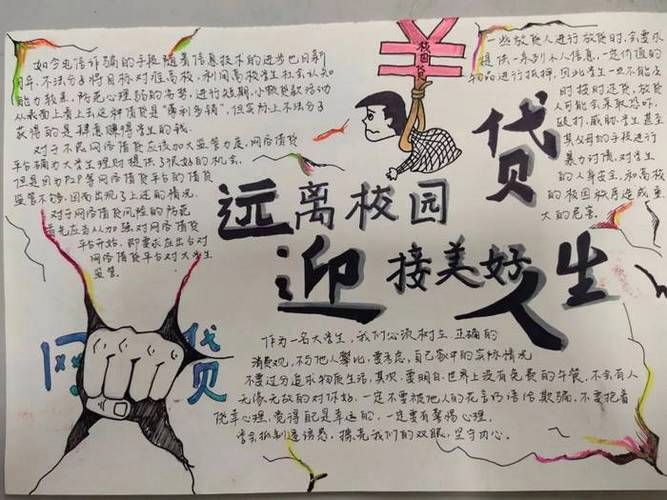 如今电信诈骗的手段随着信息技术的进步也日新
月异,不法分子将目标对准高校,利用高校学生社会认知
能力较差,防范心理弱的劣势,进行短期、小额贷款活动
从表面上看上去这种借贷是"薄利多销",但实际上不法分子
获得的是
学生的钱.
对于不良网络借贷应该加大监管力度,网络借贷
平台确为大学生理财提供了很好的机会.
但是因为P2P等网络借贷平台的借贷
监管不够,因而出现了上述的情况.
对于网络借贷风险的防范
首先应当从加强对网络借贷
平台开始,即要求应出台对
网络借贷平台对大学生
监管.
校园贷
一些放贷人进行放贷时,会要求
提供一系列个人信息,一定价值的
物品进行抵押,因此学生一旦不能及
时按时还贷,放贷
人可能会采取恐吓、
殴打、威胁学生甚至
其父母的手段进行
暴力讨债,对学生
的人身安全和高校
的校园秩序造成重
大的危害.
远离校园贷
迎接美好人生
网贷
作为一名大学生,我们必须树立正确的
消费观,不与他人攀比,要考虑自己家中的实际情况
不要过分追求物质生活.其次,要明白,世界上没有免费的午餐,不会有人
无缘无故的对你好.一定不要被他人的花言巧语给欺骗,不要抱着
侥幸心理,觉得自己是幸运的,一定要有警惕心理.
学会抵制
诱惑,擦亮我们的双眼,坚守内心.